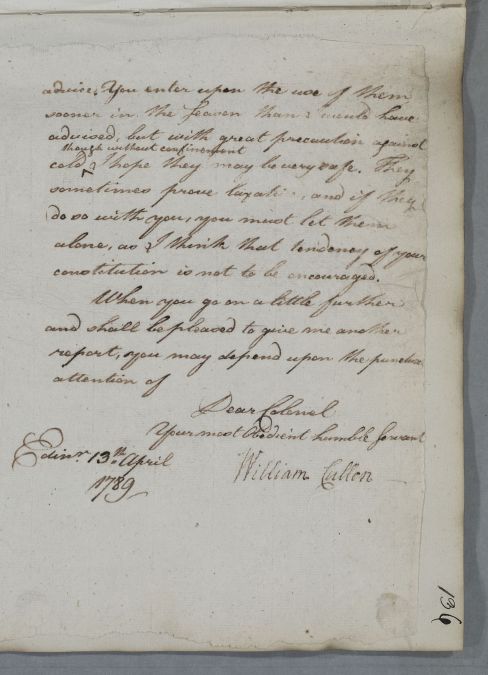 advice. You enter upon the use of them
sooner in the season than I would have
advised, but with great precaution against
though without confinement
cold I hope they may be very safe. They
sometimes prove laxati , and if they
do so with you, you must let them
alone, as I think that tendency of your
constitution is not to be encouraged.
When you go on a little further
and shall be pleased to give me another
report, you may depend upon the punctual
attention of
Dear Colonel
Your most Obedient humble servant
William Cullen
Edinr. 13th. April
1789
136